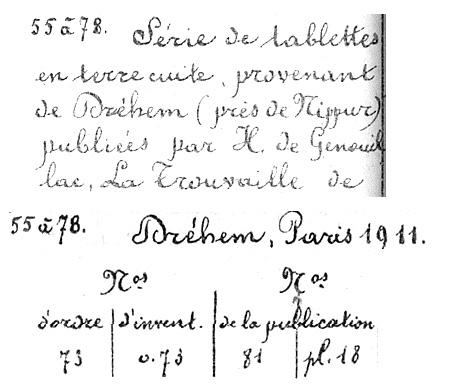 55 à 78. Série de tablettes
en terre cuite, provenant
de Dréhem (près de Nippur)
publiées par H. de Genouil
lac, La Trouvaille de
55 à 78. Dréhem, Paris 1911.
Nos Nos
d'ordre d'invent. de la publication
73 o.73 81 pl.18